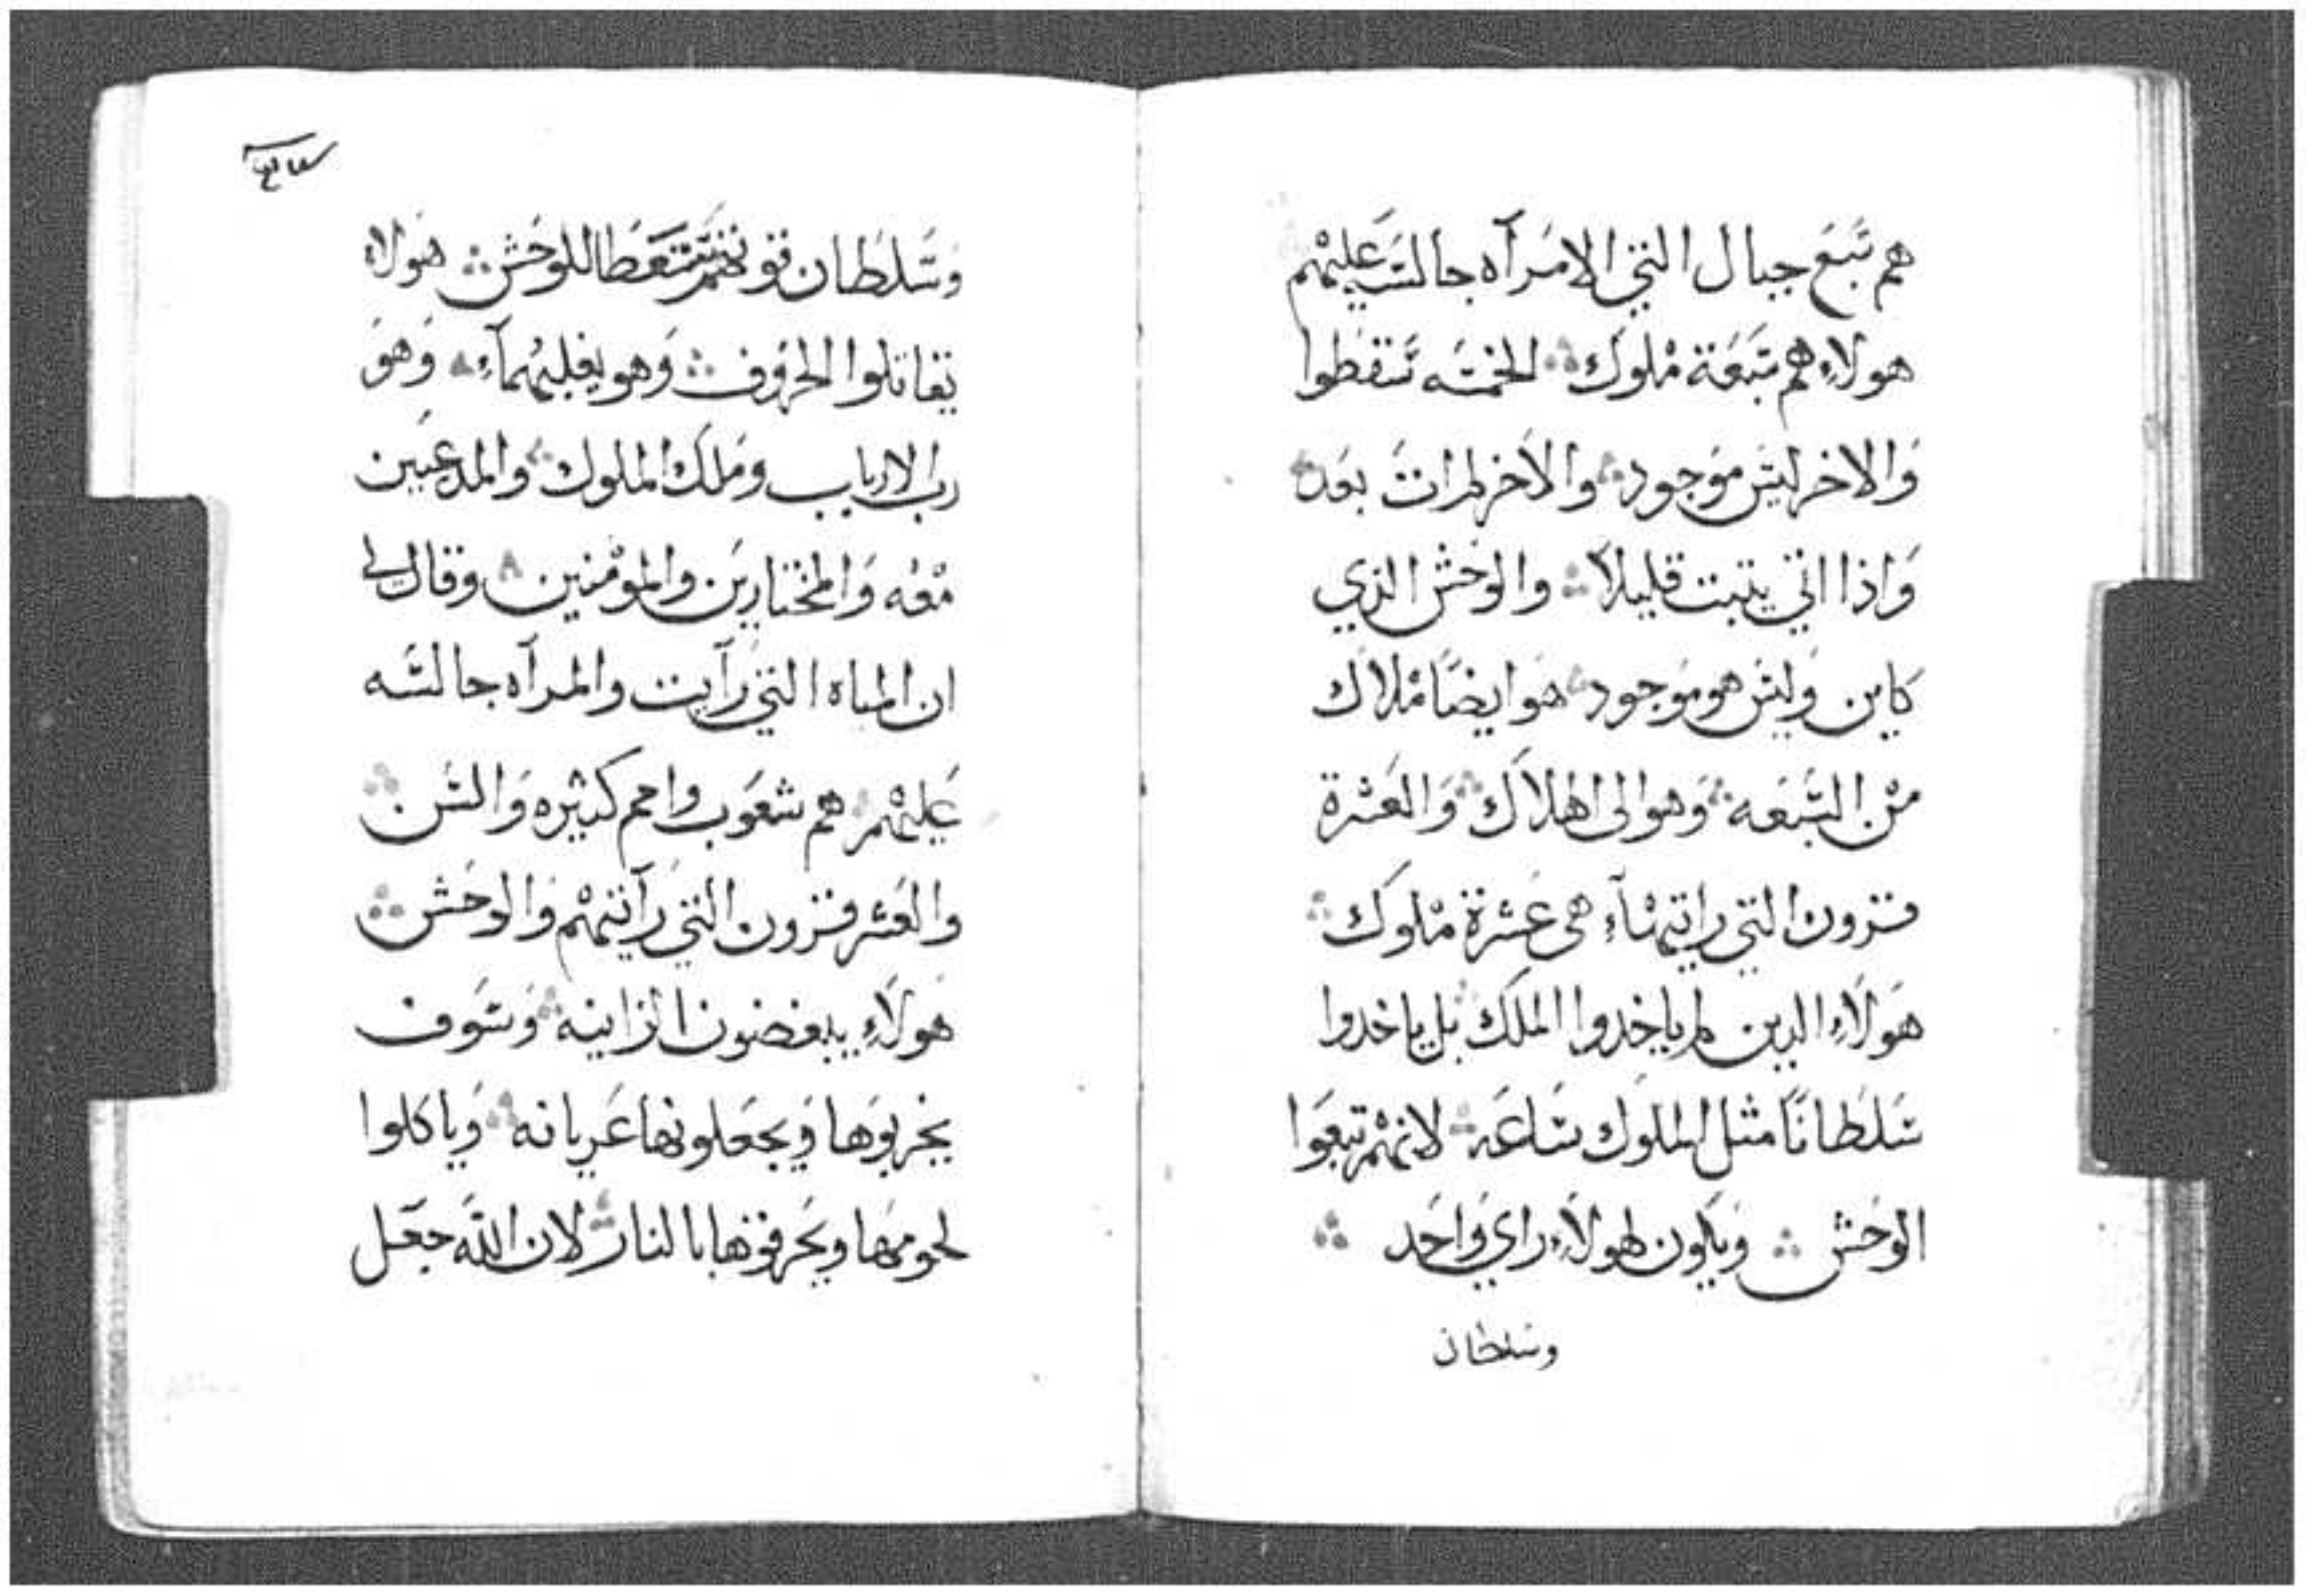 هم سَبعَ جبال التي الامرآه جالسَه عليهم
هولاءِ هم سَبعَة ملوك الخمسَه سَقطوا
وَالاخر ليسَ موجود والاخر لم اتَ بعَد
وَاذا اتي يتبت قليلاً والوحش الذي
كاين وَليسَ هو موجود هوَ ايضاً ملاك
من السَبعَه وَهو الى اهلاك وَالعَشرة
قرون التي رايتهمآءِ هى عَشرة ملوك
هَولاَءِ الدين لم ياخدوا الملك بل ياخدوا
سَلطاناً مثل الملوك سَاعَه لانهم تبعَوا
الوحَش وَيكون لهولاَءِ راي وَاحَد
وسلطان
وَسَلطان قوتهم سَتعَطا للوحَش هَولاءِ
يقاتلوا الخرَوف وَهو يغلبهمآءِ وَهوَ
رب الارباب وملك الملوك والمدعيين
معَه وَالمختارين والمومنين وقال لي
ان المياه التي رَآيت والمرآه جالسَه
عَليهم هم شعَوب وامم كثيره وَالسَن
والعَشر قرون التي رَآيتهم وَالوحَش
هَولاَءِ يبغضون الزانيه وَسَوف
يخربوَها وَيجعَلونها عَريانه وَياكلوا
لحومهَا ويحَرقونها بالنار لان اللّه جعَل